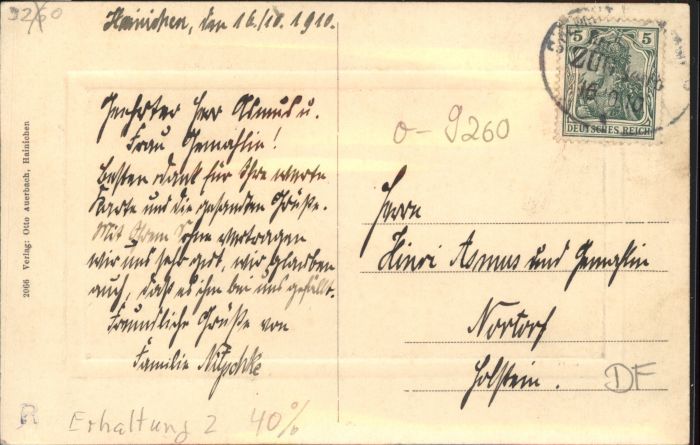 9260
Hainichen, den 16/10. 1910.
Geehrter Herr Asmus u.
Frau Gemahlin!
Besten Dank für Ihre werte
Karte und die gesanden Grüße.
Mit Ihrem Sohne vertragen
wir uns sehr gut, wir glauben
auch, daß es ihm bei uns gefällt.
Freundliche Grüße von
Familie Nitzschke
2066 Verlag: Otto Auerbach, Hainichen
5 5
DEUTSCHES REICH
ZUG
16 10 10
0-9260
Herrn
Hinri Asmus und Gemahlin
Nortorf
Holstein.
DF
R
Erhaltung 2 40%